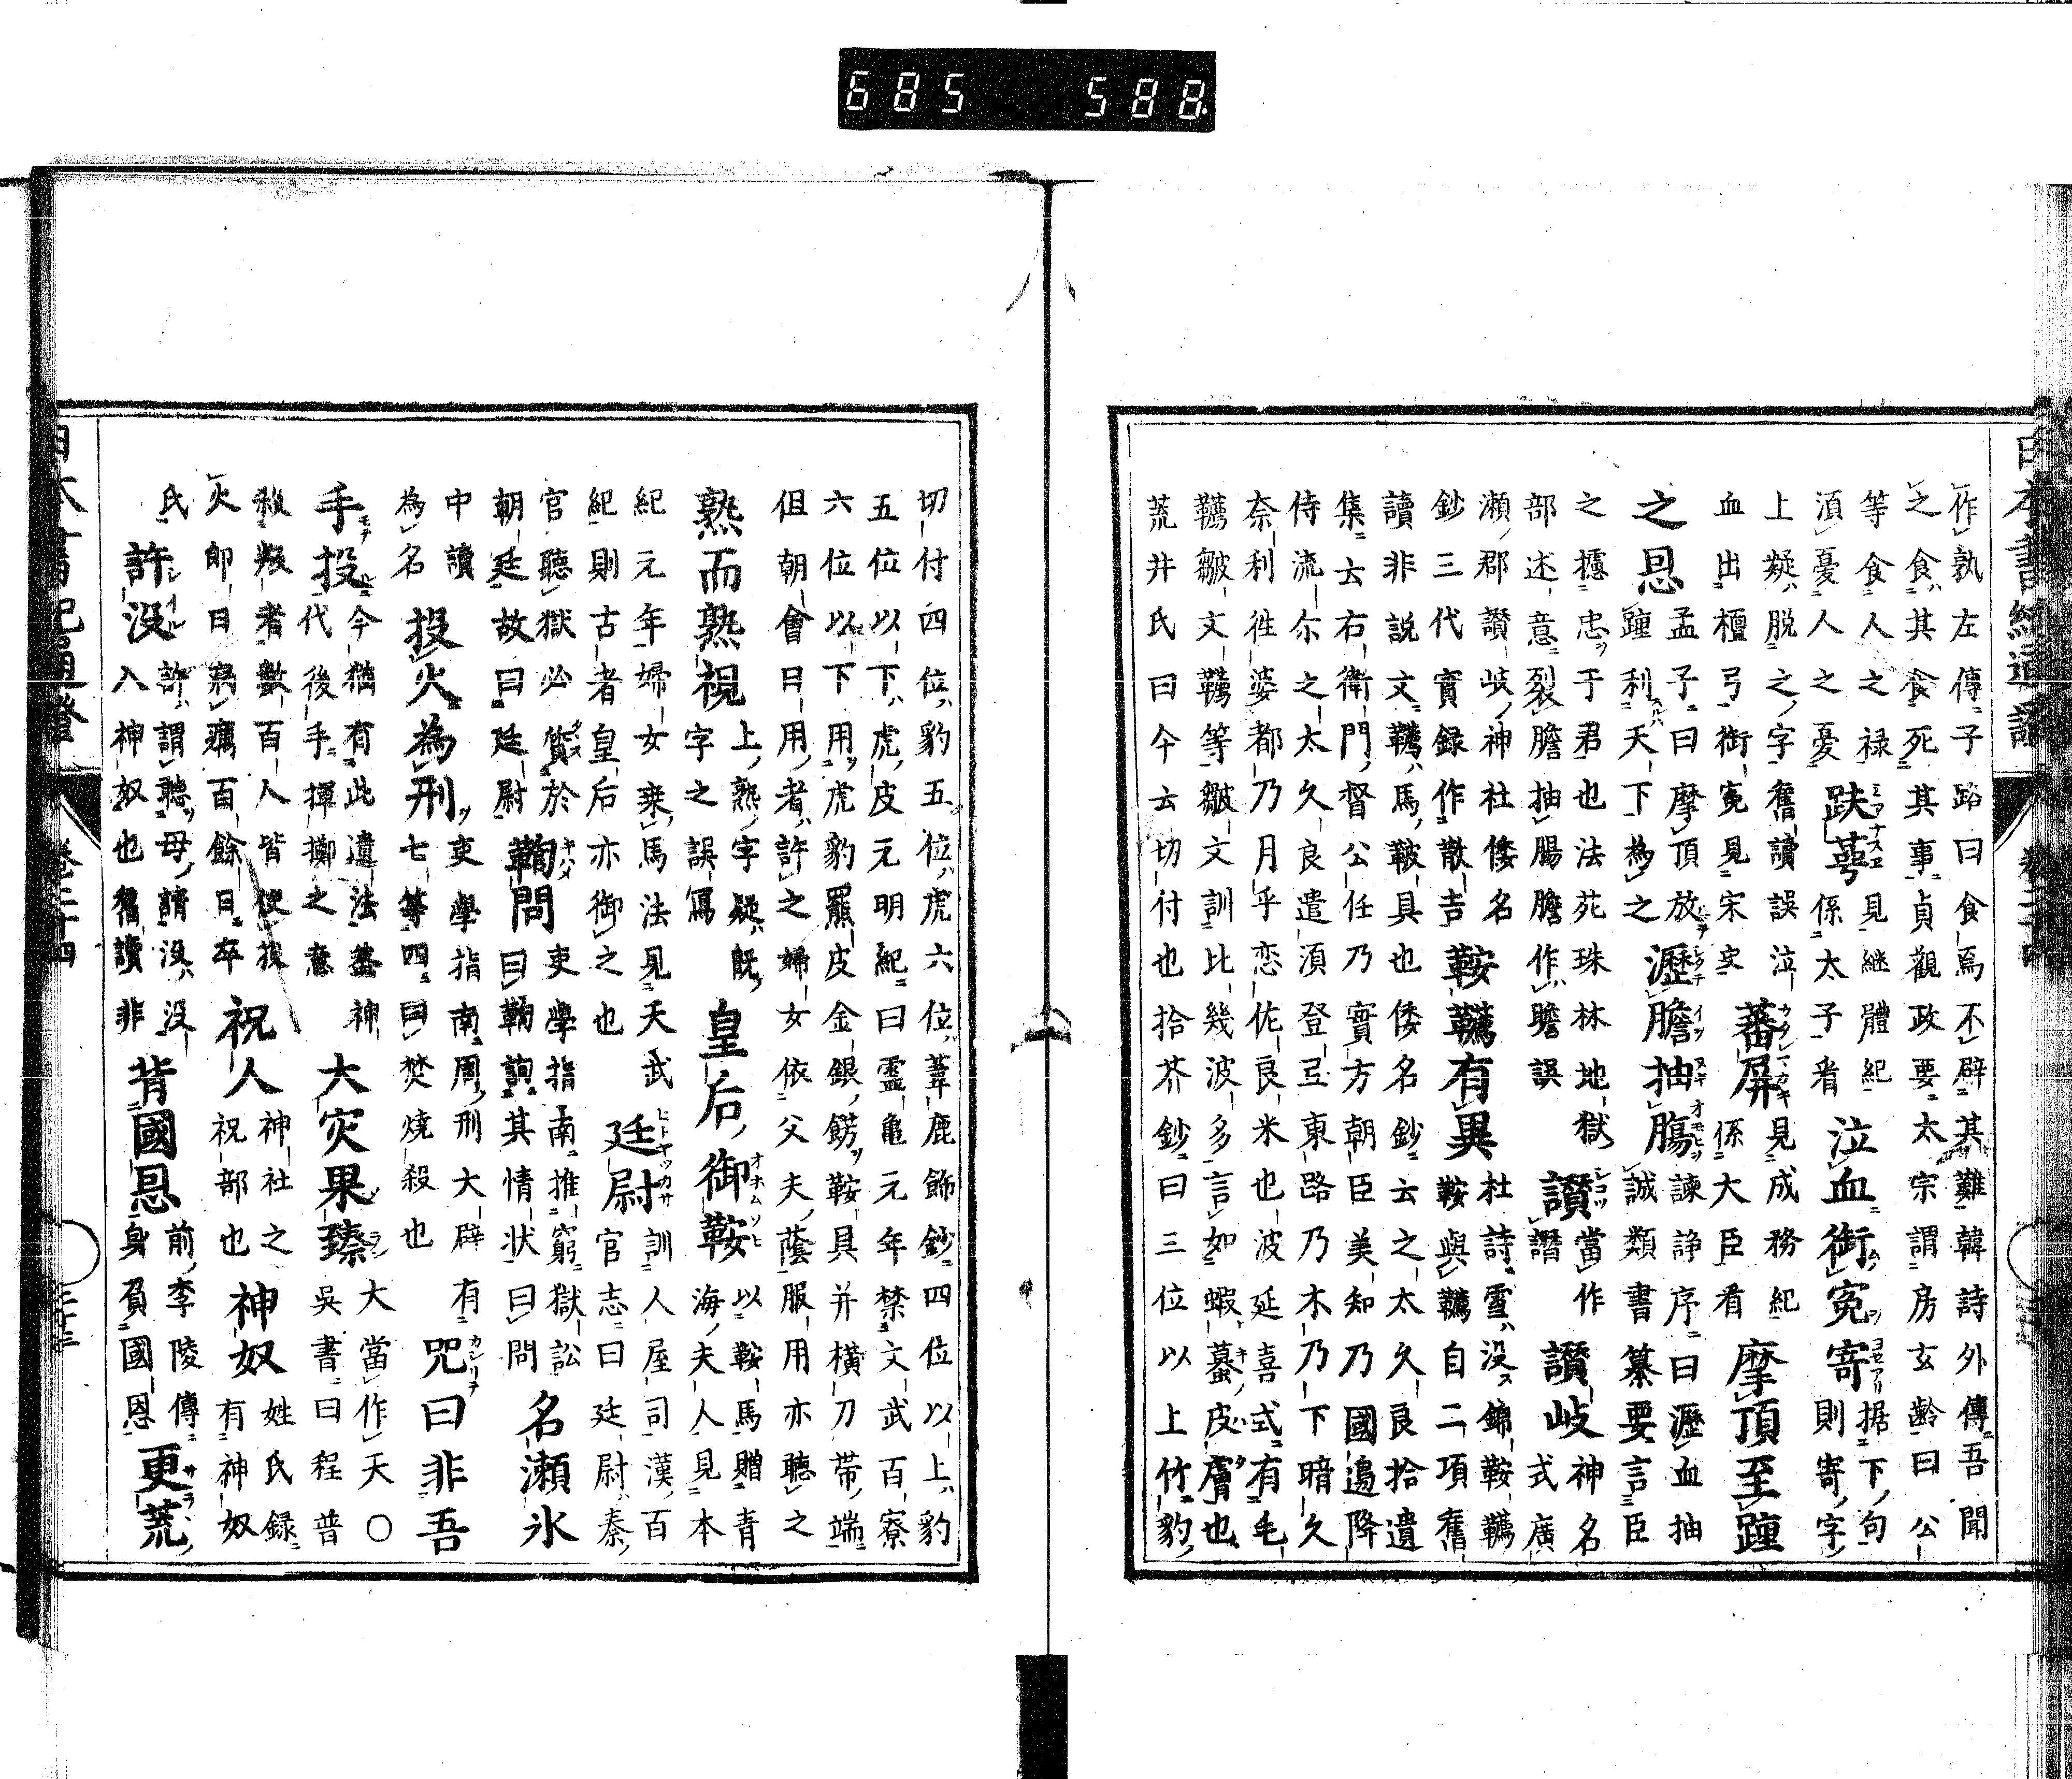 685 588
日本書紀通證
作執左傳子路曰食焉不辟其難韓詩外傳吾聞
之食其食死其事貞觀政要太宗謂房玄齡曰公
等食人之禄
湏憂人之憂
趺萼
見継體紀
係太子看
泣血銜寃寄
据下句
則寄字
上疑脱之字舊讀誤泣
血出檀弓銜寃見宋史
蕃屏
見成務紀
係大臣看
摩頂至踵
之恩
孟子曰摩頂放
踵利天下為之
瀝膽抽膓
諫諍序曰瀝血抽
誠類書纂要言臣
之攄忠于君也法苑珠林地獄
部述意裂膽抽腸膽作瞻誤
讃
當作
譖
讃岐
神名
式廣
瀬郡讃岐神社倭名
鈔三代實録作散吉
鞍韉有異
杜詩雪没錦鞍韉
鞍與韉自二項舊
讀非説文韉馬鞁具也倭名鈔云之太久良拾遺
集云右衛門督公任乃實方朝臣美知乃國邉降
侍流尓之太久良遣湏登豆東路乃木乃下暗久
奈利徃婆都乃月乎恋佐良米也波延喜式有毛
韉皺文韉等皺文訓比幾波多言如蝦蟇皮膚也
荒井氏曰今云切付也拾芥鈔曰三位以上竹豹
切付四位豹五位虎六位葦鹿餝鈔四位以上豹
五位以下虎皮元明紀曰靈亀元年禁文武百寮
六位以下用虎豹羆皮金銀餝鞍具并横刀帶端
但朝會日用者許之婦女依父夫蔭服用亦聽之
熟而熟視
上熟字疑既
字之誤寫
皇后御鞍
以鞍馬贈青
海夫人見本
紀元年婦女乗馬法見天武
紀則古者皇后亦御之也
廷尉
訓人屋司漢百
官志曰廷尉秦
官聽獄必質於
朝廷故曰廷尉
鞫問
吏學指南推窮獄訟
曰鞫詢其情状曰問
名瀬氷
中讀
為名
投火為刑
吏學指南周刑大辟有
七等四曰焚燒殺也
咒曰非吾
手投
今猶有此遺法盖神
代後手揮擲之意
大灾果臻
大當作天〇
呉書曰程普
殺叛者數百人皆使投
火即日病癘百餘日卒
祝人
神社之
祝部也
神奴
姓氏録
有神奴
氏
許没
許謂聽母請没没
入神奴也舊讀非
背國恩
前李陵傳
身負國恩
更荒
日本書紀通證 卷三十四